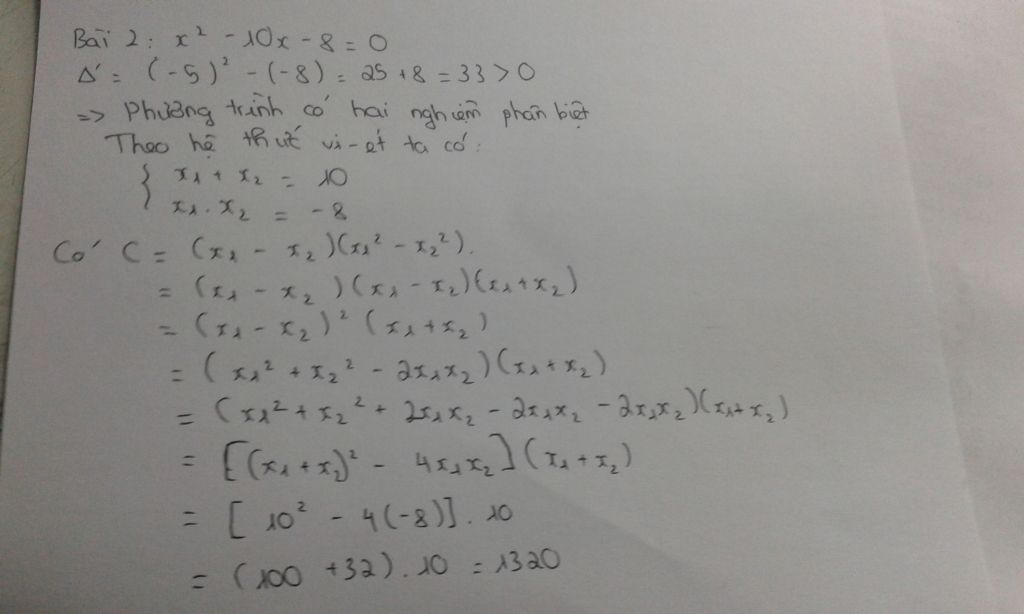 Bài 2: x² - 10x - 8 = 0
Δ' = (-5)² - (-8) = 25 + 8 = 33 > 0
=> Phương trình có hai nghiệm phân biệt
Theo hệ thức vi-ét ta có:
{ x₁ + x₂ = 10
x₁ . x₂ = -8
Có C = (x₁ - x₂)(x₁² - x₂²).
= (x₁ - x₂)(x₁ - x₂)(x₁ + x₂)
= (x₁ - x₂)² (x₁ + x₂)
= (x₁² + x₂² - 2x₁x₂)(x₁ + x₂)
= (x₁² + x₂² + 2x₁x₂ - 2x₁x₂ - 2x₁x₂)(x₁ + x₂)
= [(x₁ + x₂)² - 4x₁x₂](x₁ + x₂)
= [10² - 4(-8)] . 10
= (100 + 32) . 10 = 1320